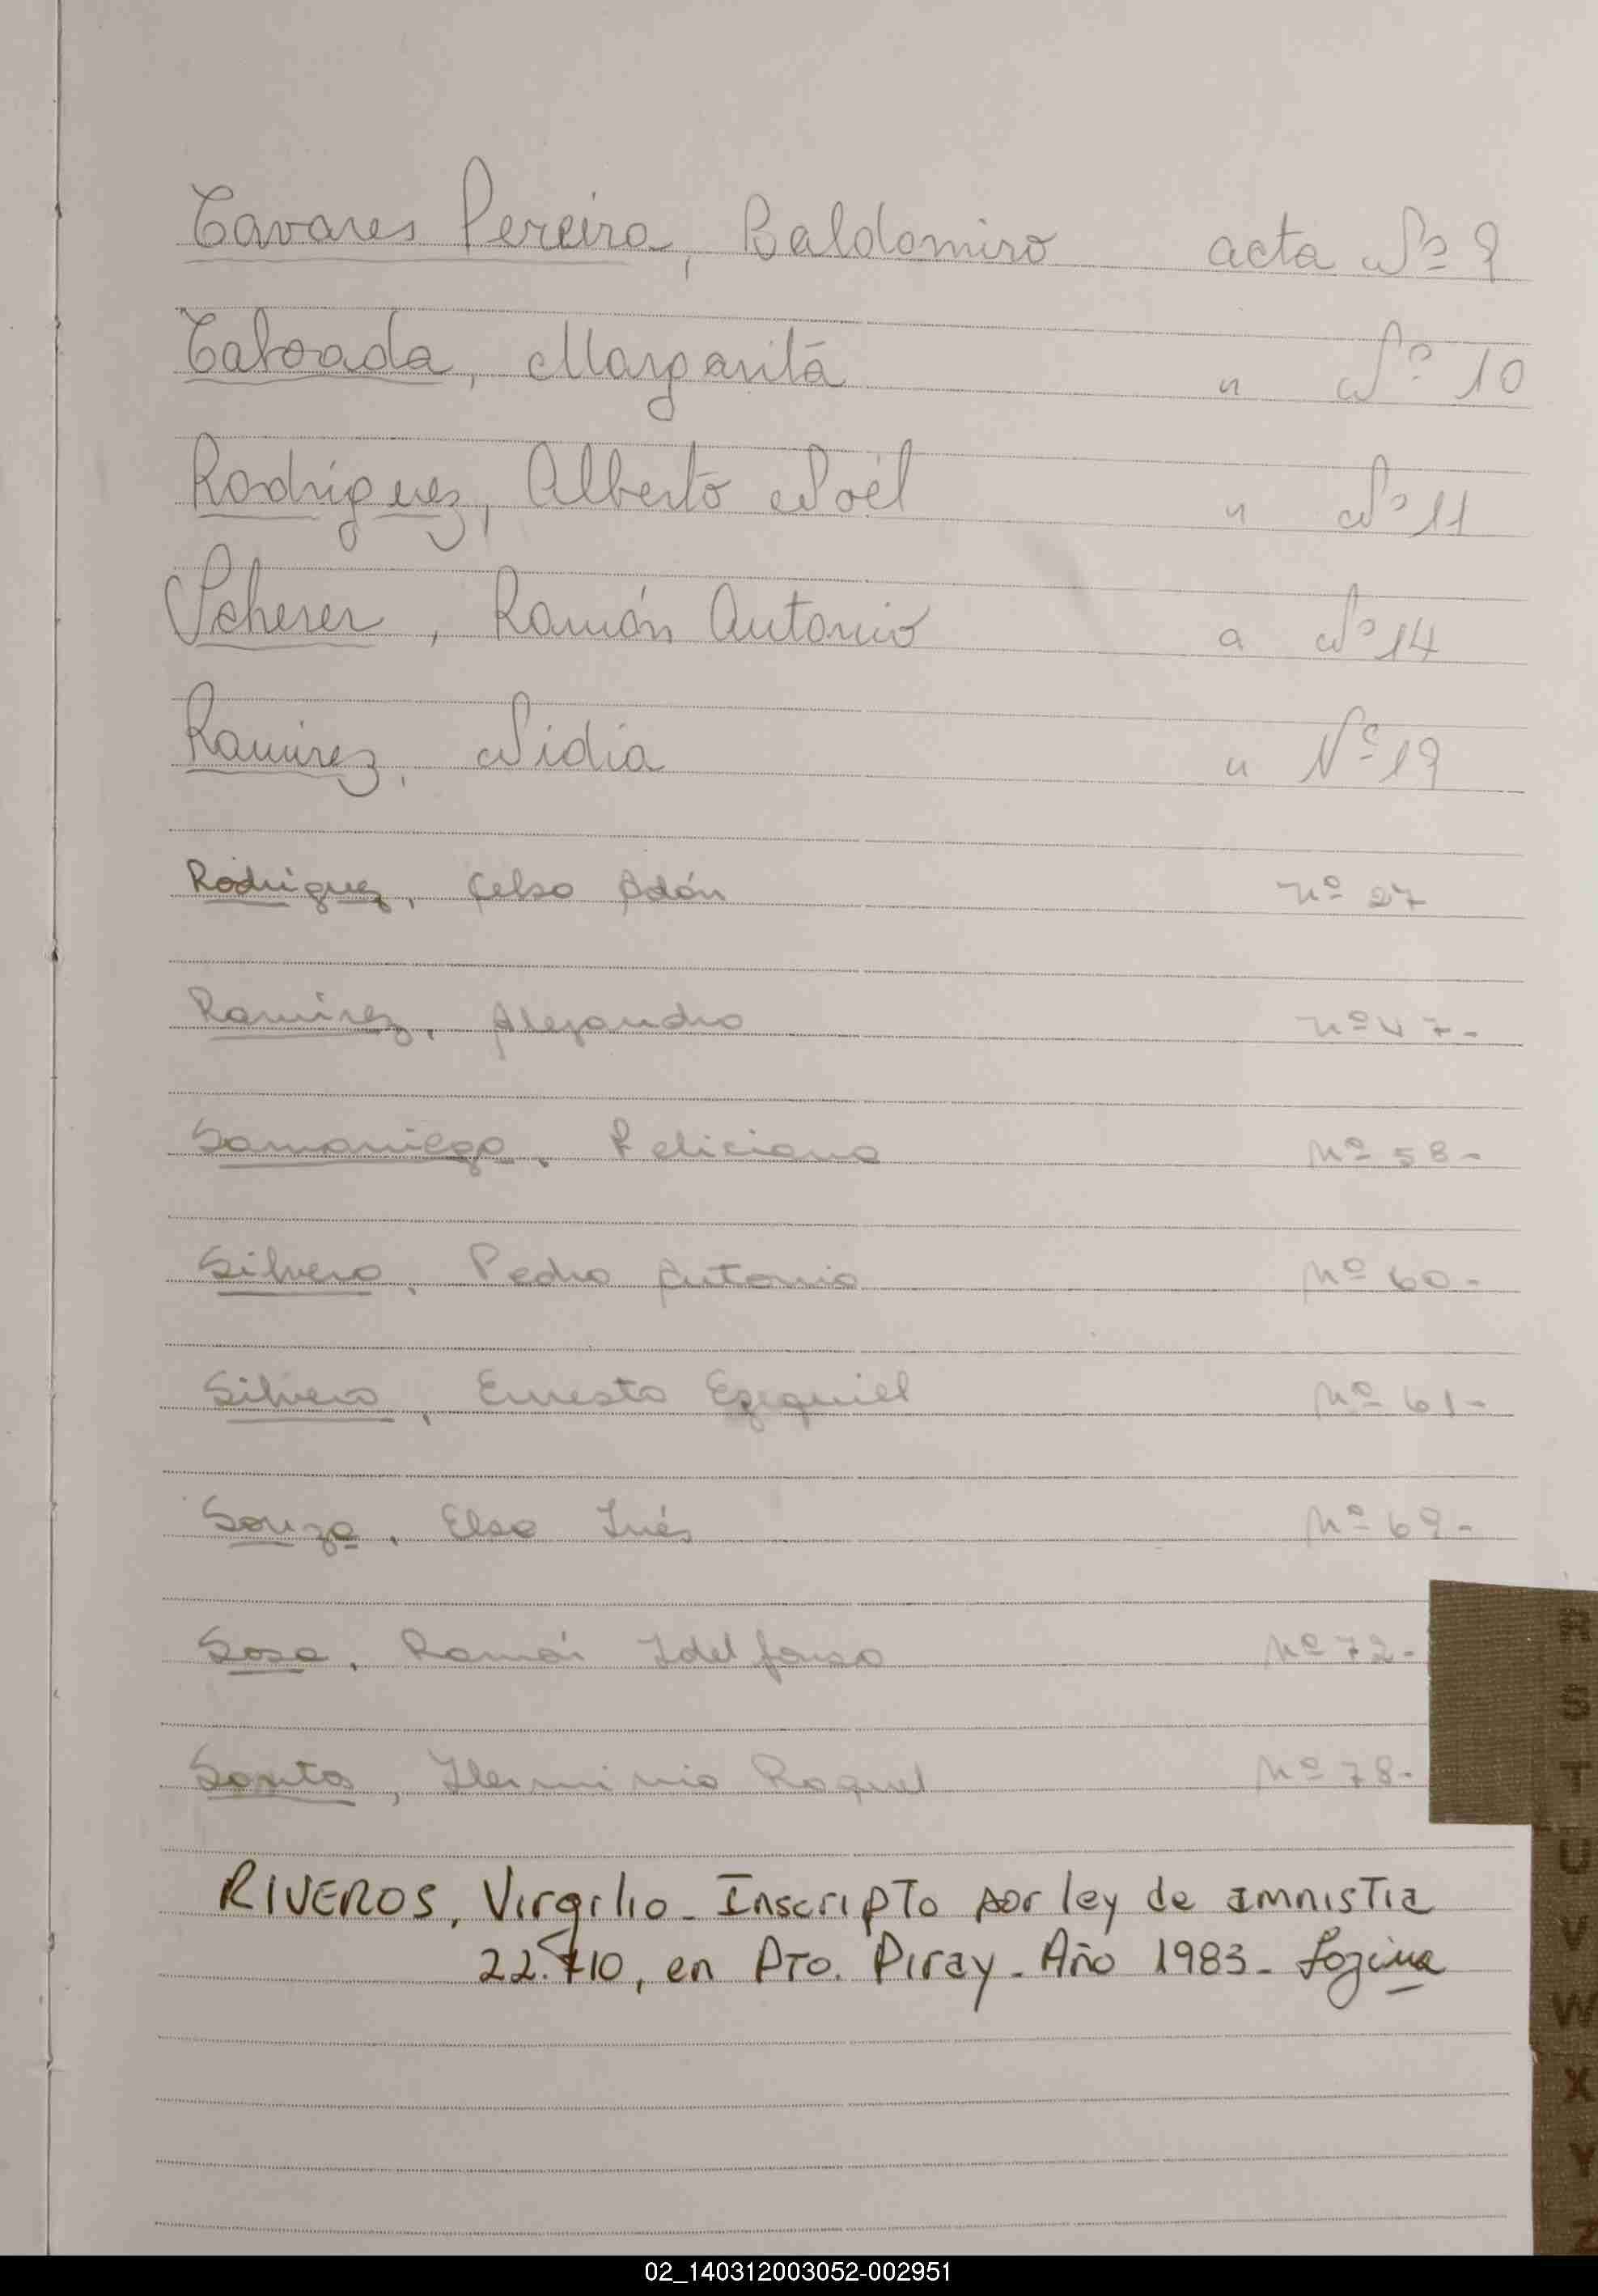 Tavares Pereira, Baldomiro acta Nº 9
Taboada, Margarita " Nº 10
Rodriguez, Alberto Noél " Nº 11
Scherer, Ramón Antonio " Nº 14
Ramirez, Nidia " Nº 19
Rodriguez, Celso Adón nº 27
Ramírez, Alejandro nº 47-
Samaniego, Feliciana Nº 58-
Silvero, Pedro Antonio Nº 60-
Silvero, Ernesto Ezequiel Nº 61-
Souza, Elsa Inés Nº 69-
Sosa, Ramón Idelfonso Nº 72-
Herminia Raquel Nº 78-
RIVEROS, Virgilio - Inscripto por ley de amnistia
22.410, en Pto. Piray - Año 1983 -
R
S
T
U
V
W
X
Y
Z
02_140312003052-002951